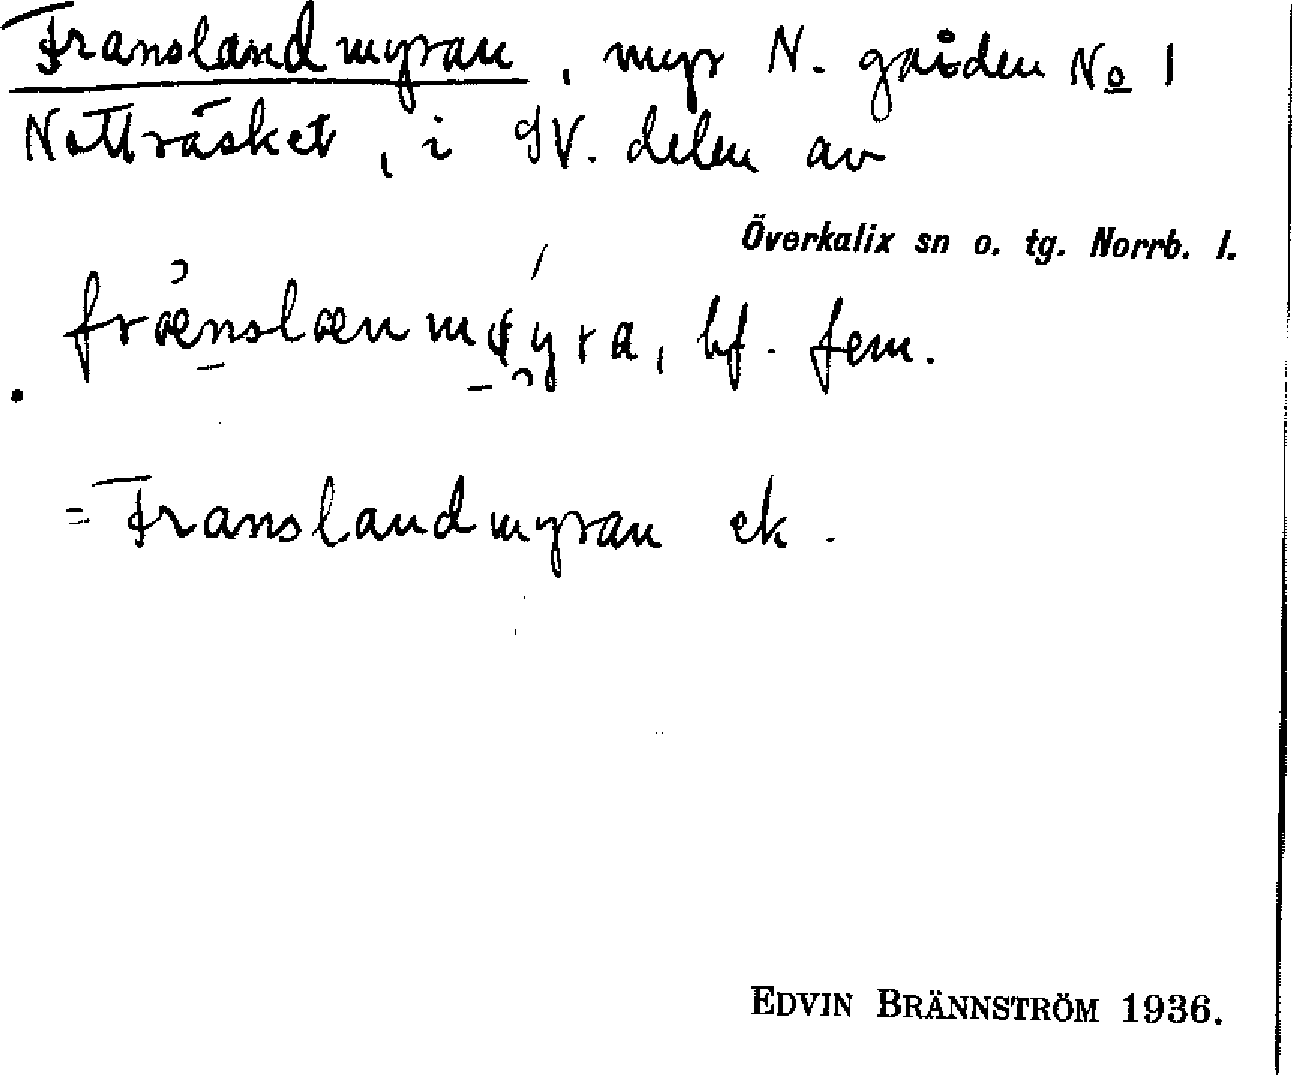 Franslandmyran, myr N. gården No 1
Nattträsket, i SV. delen av
Överkalix sn o. tg. Norrb. l.
frænslænmøyra, bf. fem.
= Franslandmyran ek.
EDVIN BRÄNNSTRÖM 1936.